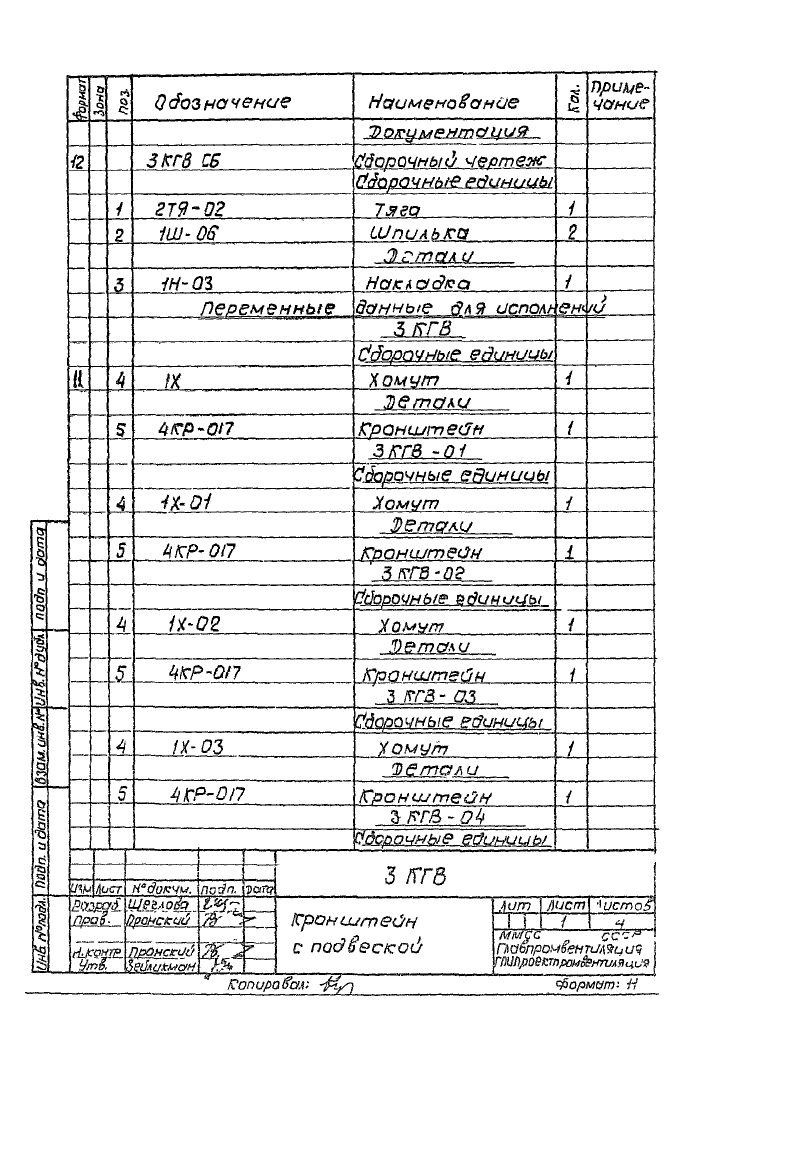 Формат Зона Поз. Обозначение Наименование Кол. Приме-
чание
Документация
12 3 КГВ СБ Сборочный чертеж
Сборочные единицы
1 2ТЯ-02 Тяга 1
2 1Ш-06 Шпилька 2
Детали
3 1Н-03 Накладка 1
Переменные данные для исполнений
3 КГВ
Сборочные единицы
11 4 1Х Хомут 1
Детали
5 4КР-017 Кронштейн 1
3 КГВ-01
Сборочные единицы
4 1Х-01 Хомут 1
Детали
5 4КР-017 Кронштейн 1
3 КГВ-02
Сборочные единицы
4 1Х-02 Хомут 1
Детали
5 4КР-017 Кронштейн 1
3 КГВ-03
Сборочные единицы
4 1Х-03 Хомут 1
Детали
5 4КР-017 Кронштейн 1
3 КГВ-04
Сборочные единицы
Инв. №подл. Подп. и дата Взам. инв. № Инв. №дубл. подп и дата
Изм Лист №докум. Подп. Дата
3 КГВ
Разраб Щеглова
Пров. Пронский
Н.контр Пронский
Утв. Зейликман
Кронштейн
с подвеской
Лит Лист Листов
1 4
ММСС СССР
Главпромвентиляция
Гипроектпромвентиляция
Копировал: Формат: 11